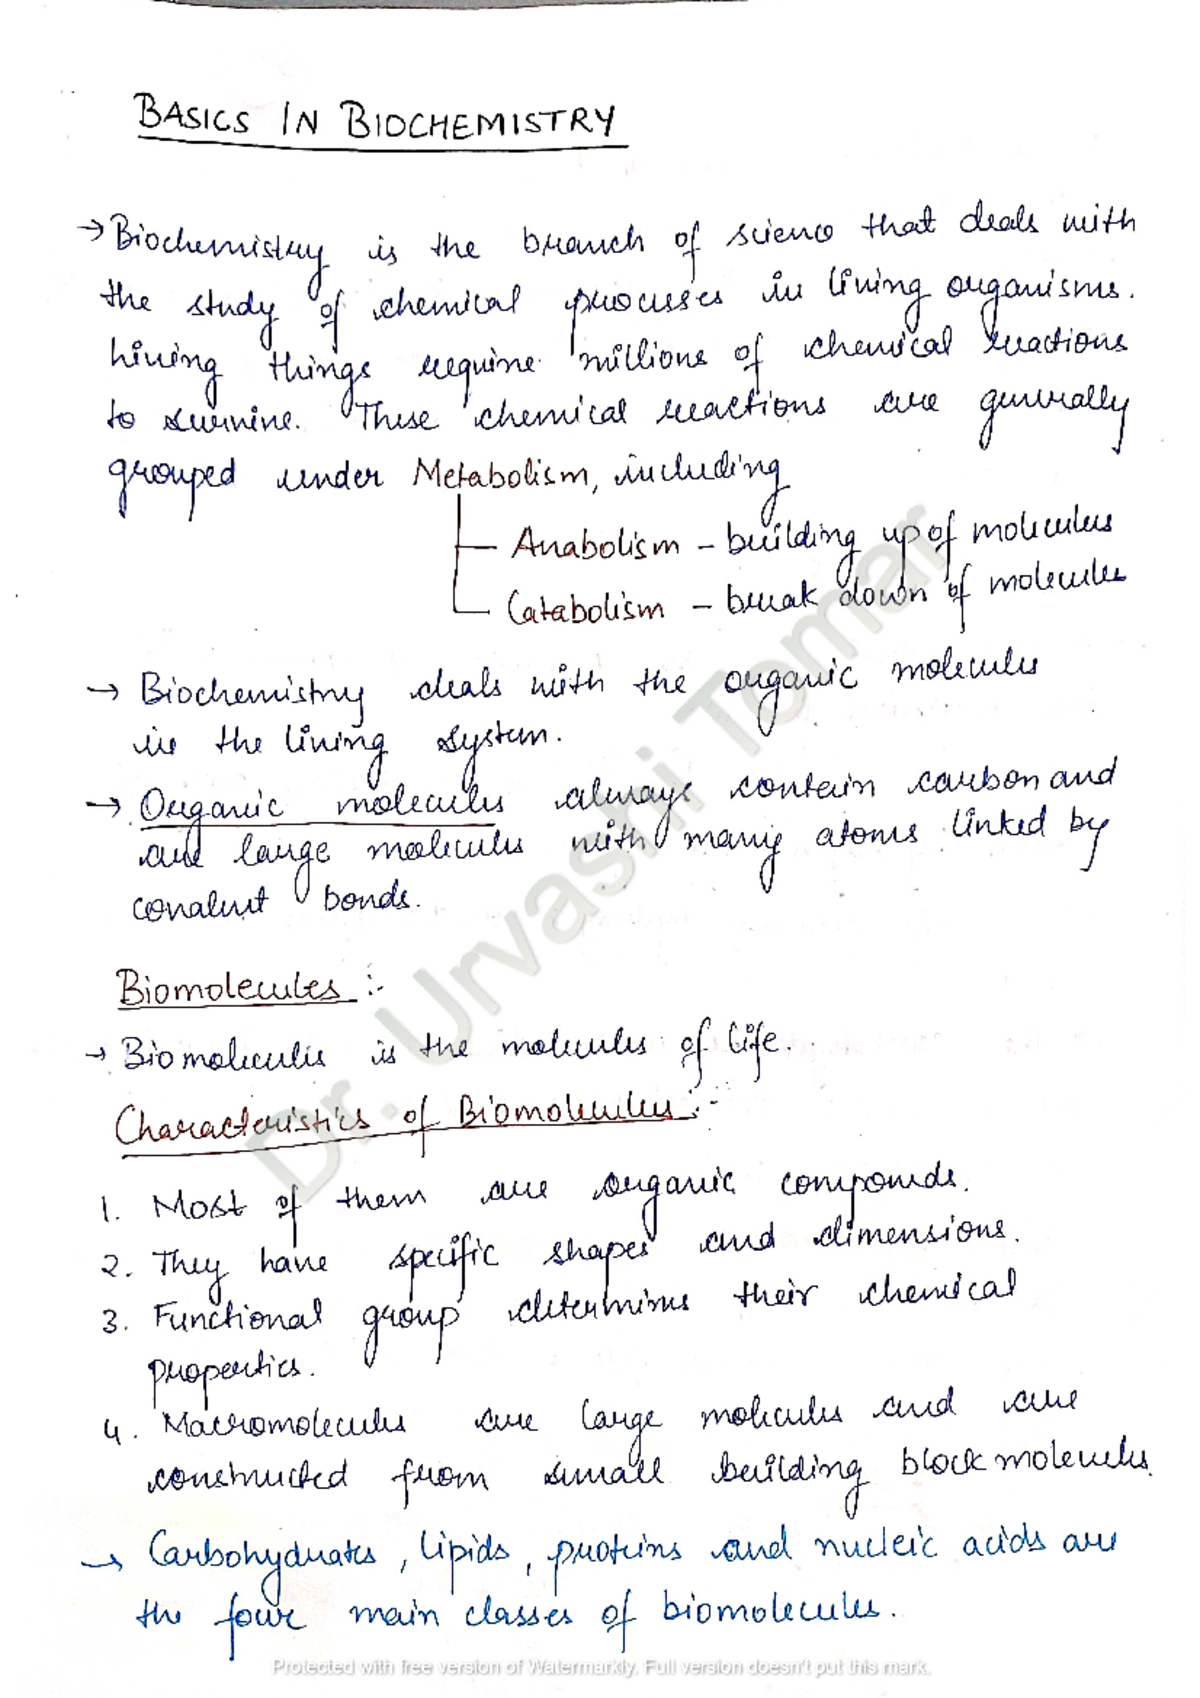 BASICS IN BIOCHEMISTRY
→ Biochemistry is the branch of science that deals with
the study of chemical processes in living organisms.
Living things require millions of chemical reactions
to survive. These chemical reactions are generally
grouped under Metabolism, including
Anabolism - building up of molecules
Catabolism - break down of molecules
→ Biochemistry deals with the organic molecules
in the living system.
→ Organic molecules always contain carbon and
are large molecules with many atoms linked by
covalent bonds.
Biomolecules :-
→ Biomolecules is the molecules of life.
Characteristics of Biomolecules :-
1. Most of them are organic compounds.
2. They have specific shapes and dimensions.
3. Functional group determines their chemical
properties.
4. Macromolecules are large molecules and are
constructed from small building block molecules.
→ Carbohydrates, lipids, proteins and nucleic acids are
the four main classes of biomolecules.
Dr. Urvashi Tomar
Protected with free version of Watermarkly. Full version doesn't put this mark.